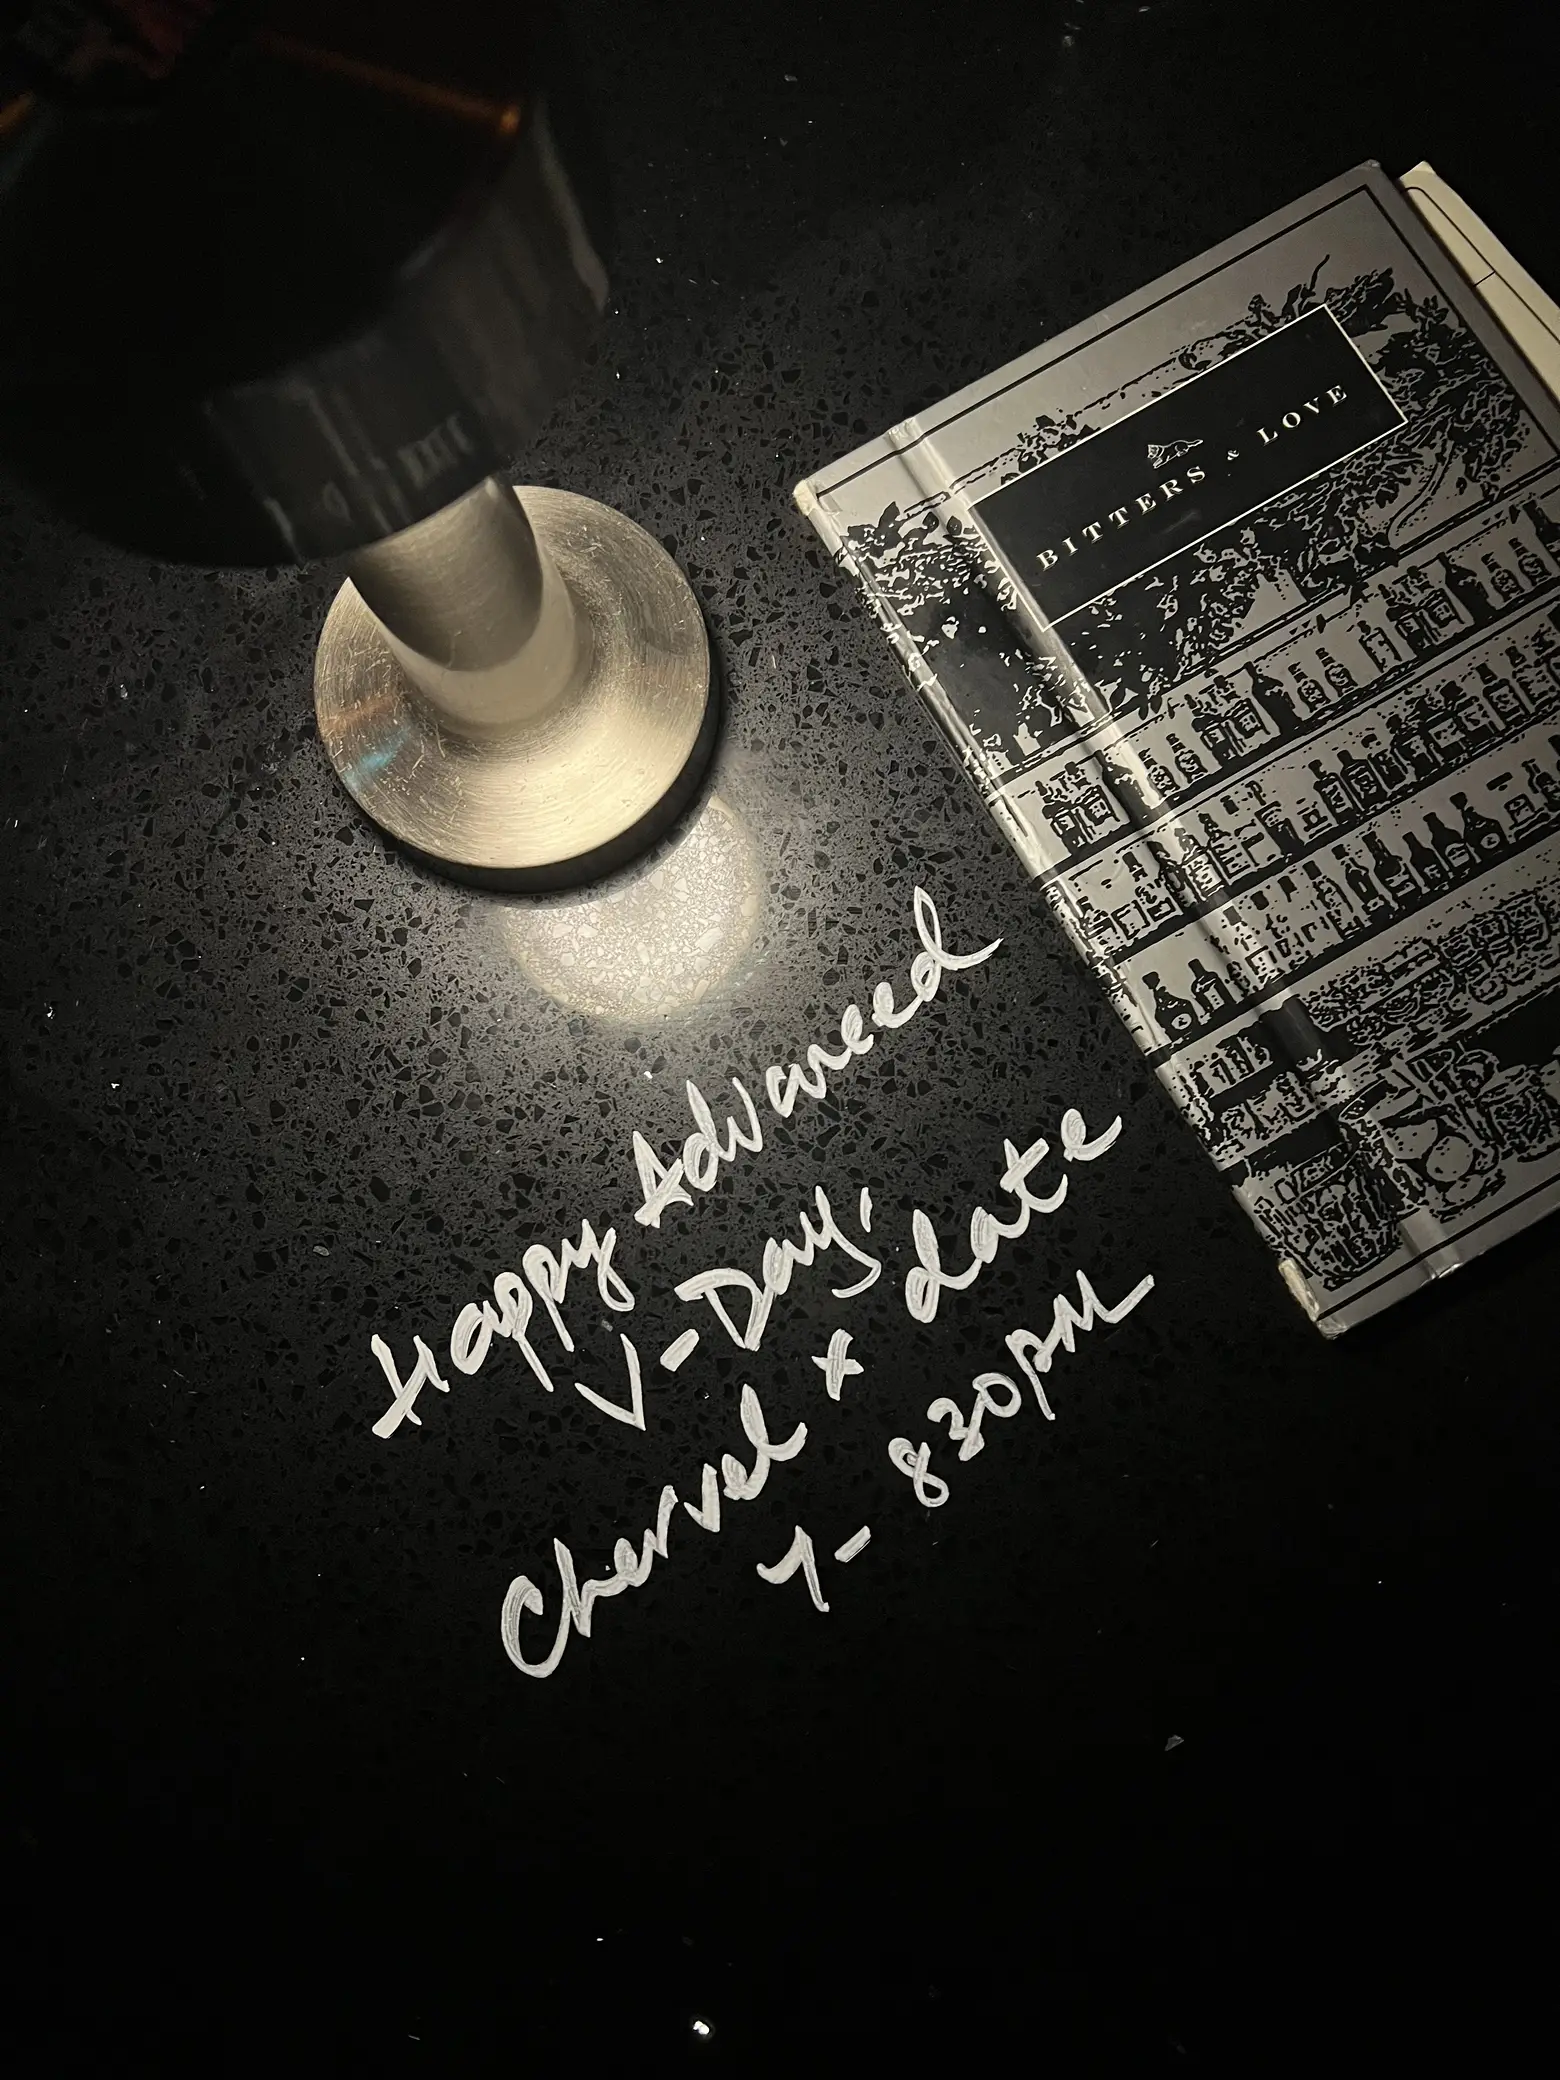 BITTERS & LOVE
Happy Advanced
V-Day'
Chervel + date
7- 830PM